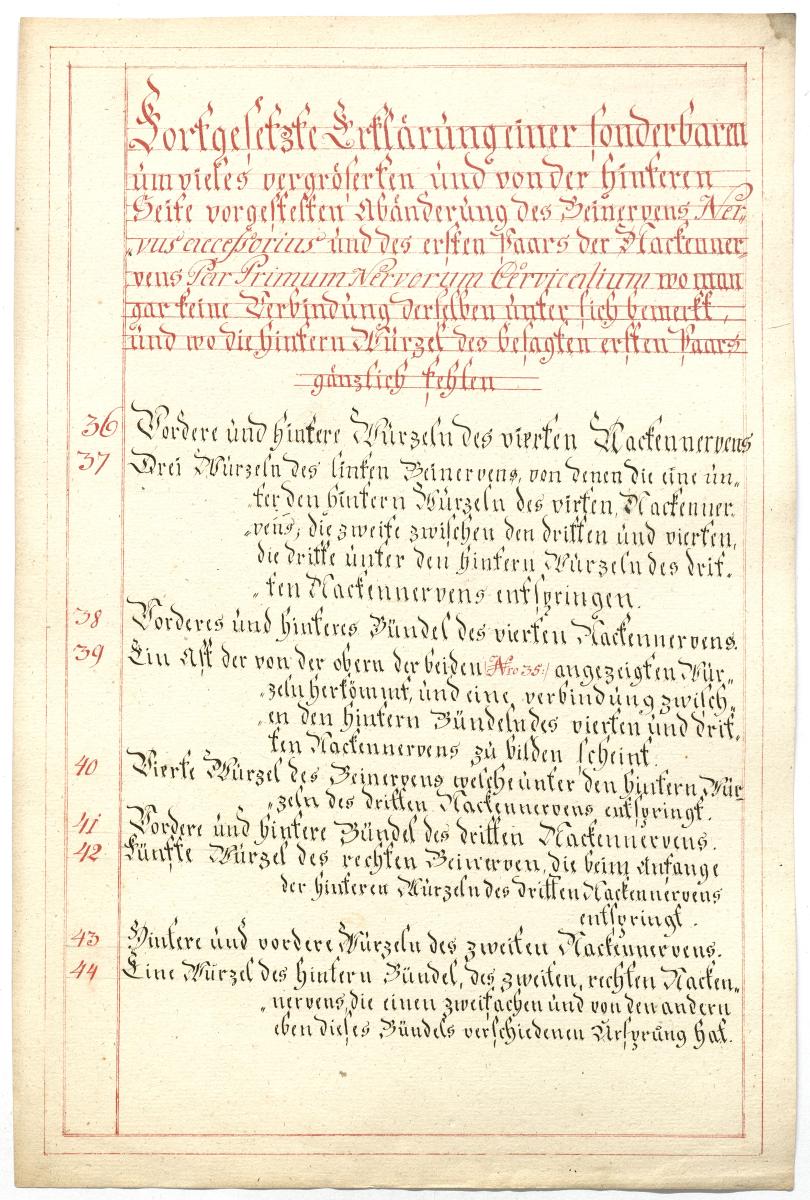 Fortgesetzte Erklärung einer sonderbaren
um vieles vergröserten und von der hinteren
Seite vorgestelten Abänderung des Beinervens Ner„
„vus accessorius und des ersten Paars der Nackenner„
vens Par Primum Nervorum Cervicalium wo man
gar keine Verbindung derselben unter sich bemerkt,
und wo die hintern Würzel des besagten ersten Paars
gänzlich fehlen
36 Vordere und hintere Würzeln des vierten Nackennervens
37 Drei Würzeln des linken Beinervens, von denen die eine un„
„ter den hintern Würzeln des virten Nackenner„
„vens, die zweite zwischen den dritten und vierten,
die dritte unter den hintern Würzeln des drit„
„ten Nackennervens entspringen.
38 Vorderes und hinteres Bündel des vierten Nackennervens.
39 Ein Ast der von der obern der beiden |:Nro 35:| angezeigten Wür„
„zeln herkömmt, und eine verbindung zwisch„
„en den hintern Bündeln des vierten und drit„
„ten Nackennervens zu bilden scheint.
40 Vierte Würzel des Beinervens welche unter den hintern Wür„
„zeln des dritten Nackennervens entspringt.
41 Vordere und hintere Bündel des dritten Nackennervens.
42 Fünfte Würzel des rechten Beinerven, die beim Anfange
der hinteren Würzeln des dritten Nackennervens
entspringt.
43 Hintere und vordere Würzeln des zweiten Nackennervens.
44 Eine Würzel des hintern Bündel, des zweiten, rechten Nacken„
„nervens, die einen zweifachen und von den andern
eben dieses Bündels verschiedenen Ursprung hat.